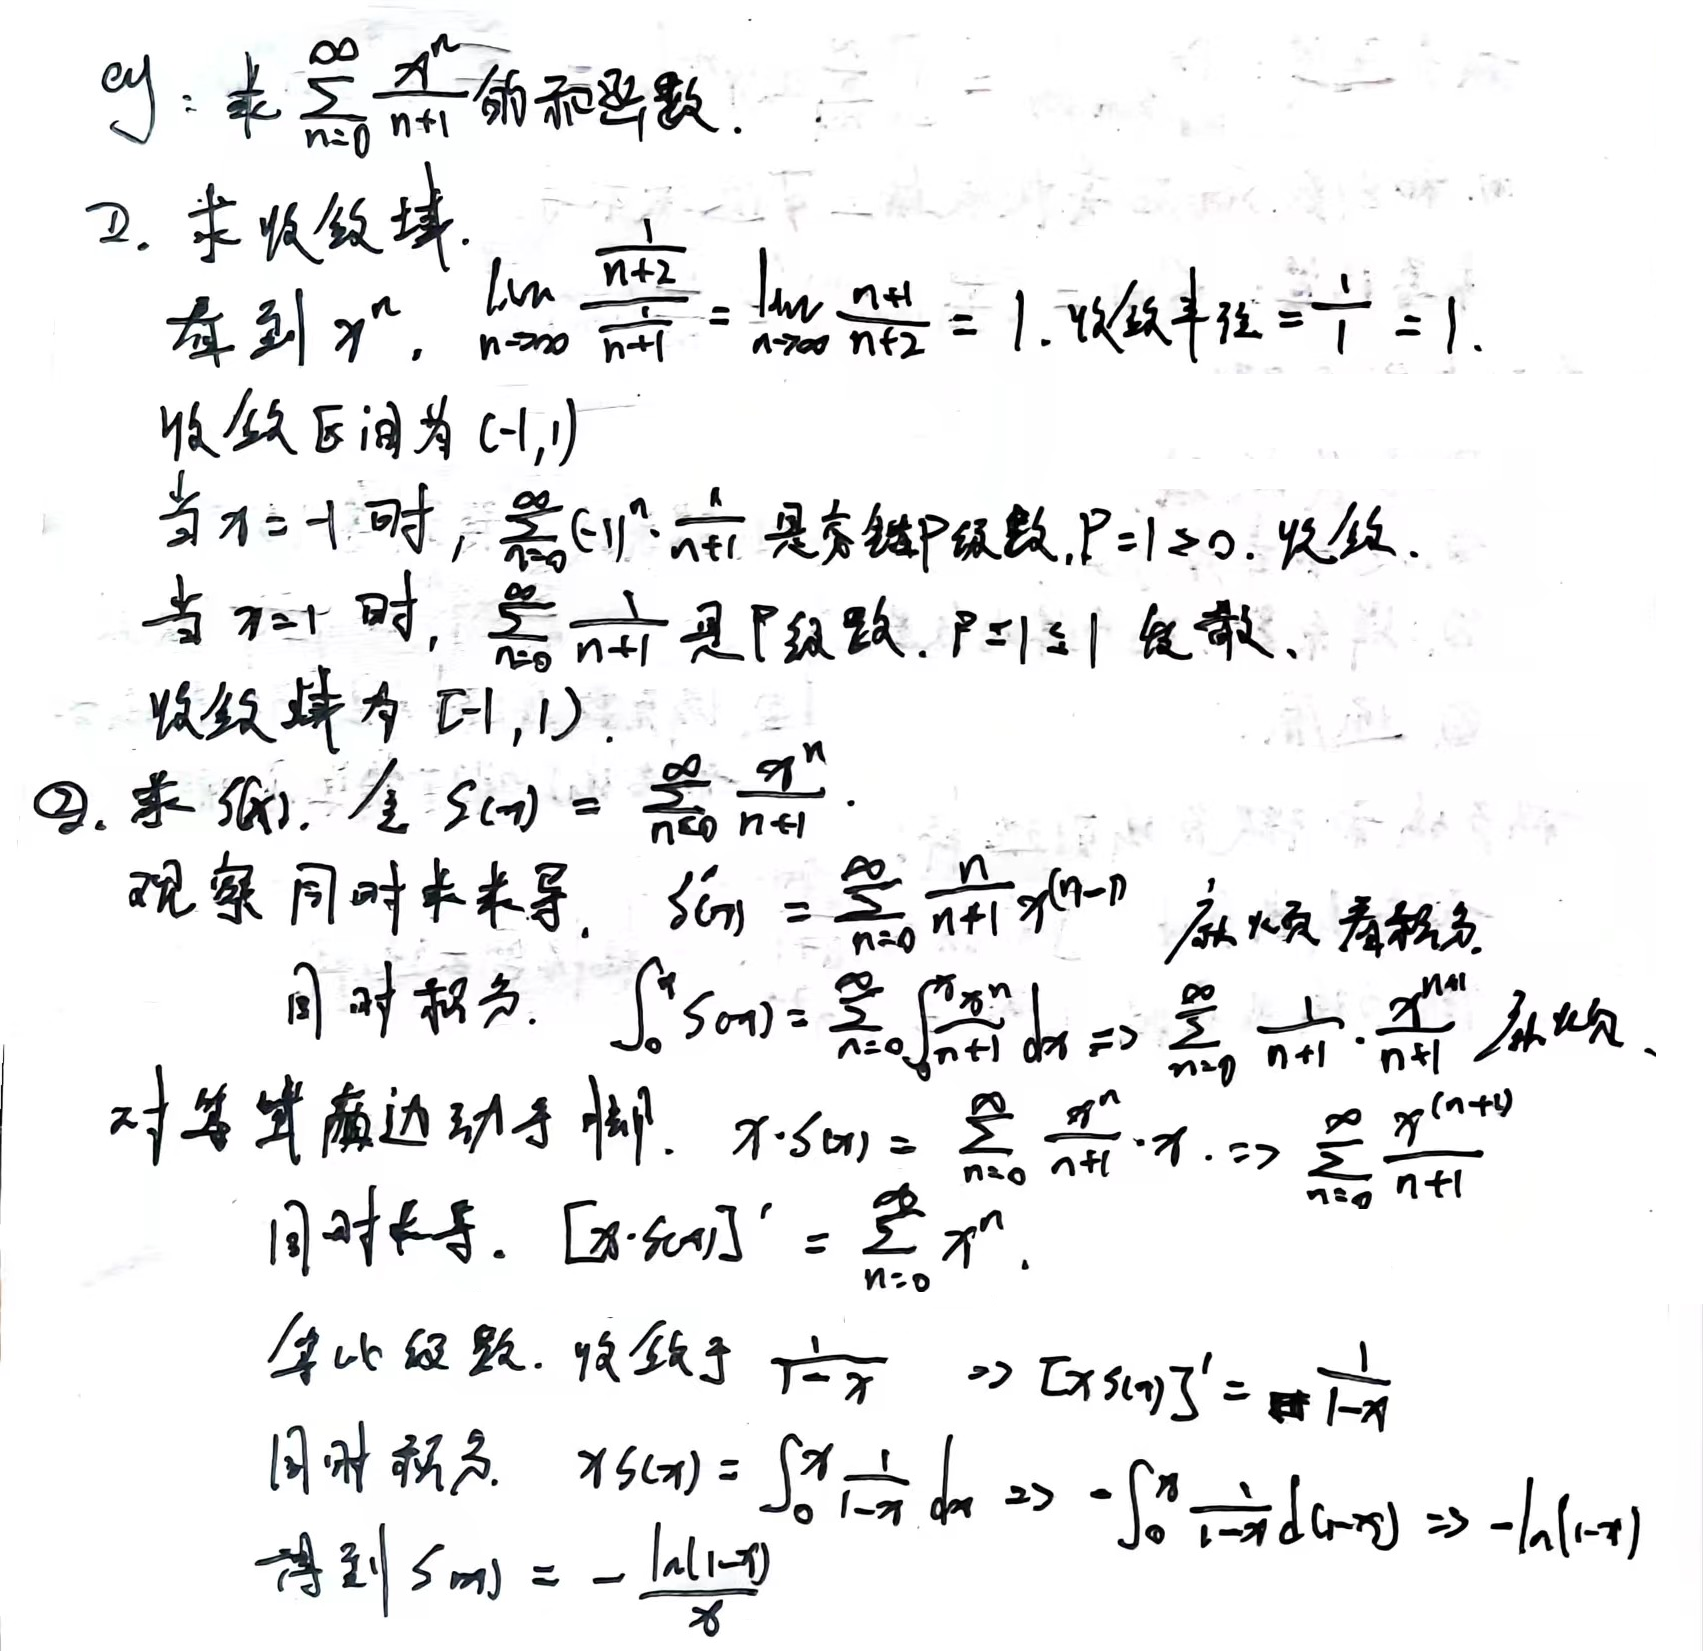 eg: 求 $\sum_{n=0}^{\infty} \frac{x^n}{n+1}$ 的和函数.
①. 求收敛域.
看到 $x^n$, $\lim_{n\to\infty} \frac{\frac{1}{n+2}}{\frac{1}{n+1}} = \lim_{n\to\infty} \frac{n+1}{n+2} = 1$. 收敛半径 $= \frac{1}{1} = 1$.
收敛区间为 (-1,1)
当 $x=-1$ 时, $\sum_{n=0}^{\infty} (-1)^n \cdot \frac{1}{n+1}$ 是交错P级数, $P=1>0$. 收敛.
当 $x=1$ 时, $\sum_{n=0}^{\infty} \frac{1}{n+1}$ 是P级数. $P=1\leq1$ 发散、
收敛域为 [-1,1).
②. 求 S(x). 令 $S(x) = \sum_{n=0}^{\infty} \frac{x^n}{n+1}$.
观察同时求求导. $S'(x) = \sum_{n=0}^{\infty} \frac{n}{n+1} x^{(n-1)}$ 麻烦看积分.
同时积分. $\int_0^x S(x) = \sum_{n=0}^{\infty} \int_0^x \frac{x^n}{n+1} dx \Rightarrow \sum_{n=0}^{\infty} \frac{1}{n+1} \cdot \frac{x^{n+1}}{n+1}$ 麻烦、
对等式两边动手脚. $x \cdot S(x) = \sum_{n=0}^{\infty} \frac{x^n}{n+1} \cdot x. \Rightarrow \sum_{n=0}^{\infty} \frac{x^{(n+1)}}{n+1}$
同时求导. $[x \cdot S(x)]' = \sum_{n=0}^{\infty} x^n$.
等比级数. 收敛于 $\frac{1}{1-x}$ $\Rightarrow [xS(x)]' = \frac{1}{1-x}$
同时积分. $xS(x) = \int_0^x \frac{1}{1-x} dx \Rightarrow -\int_0^x \frac{1}{1-x} d(1-x) \Rightarrow -\ln(1-x)$
得到 $S(x) = -\frac{\ln(1-x)}{x}$